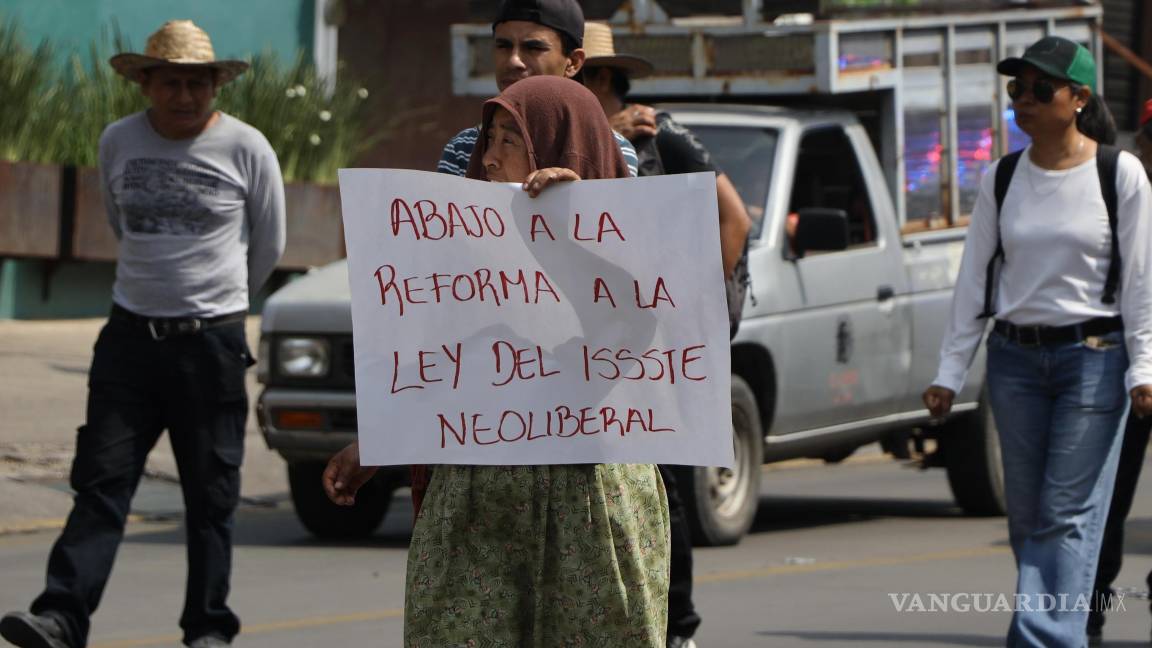 ABAJO A LA
REFORMA A LA
LEY DEL ISSSTE
NEOLIBERAL
VANGUARDIA|MX